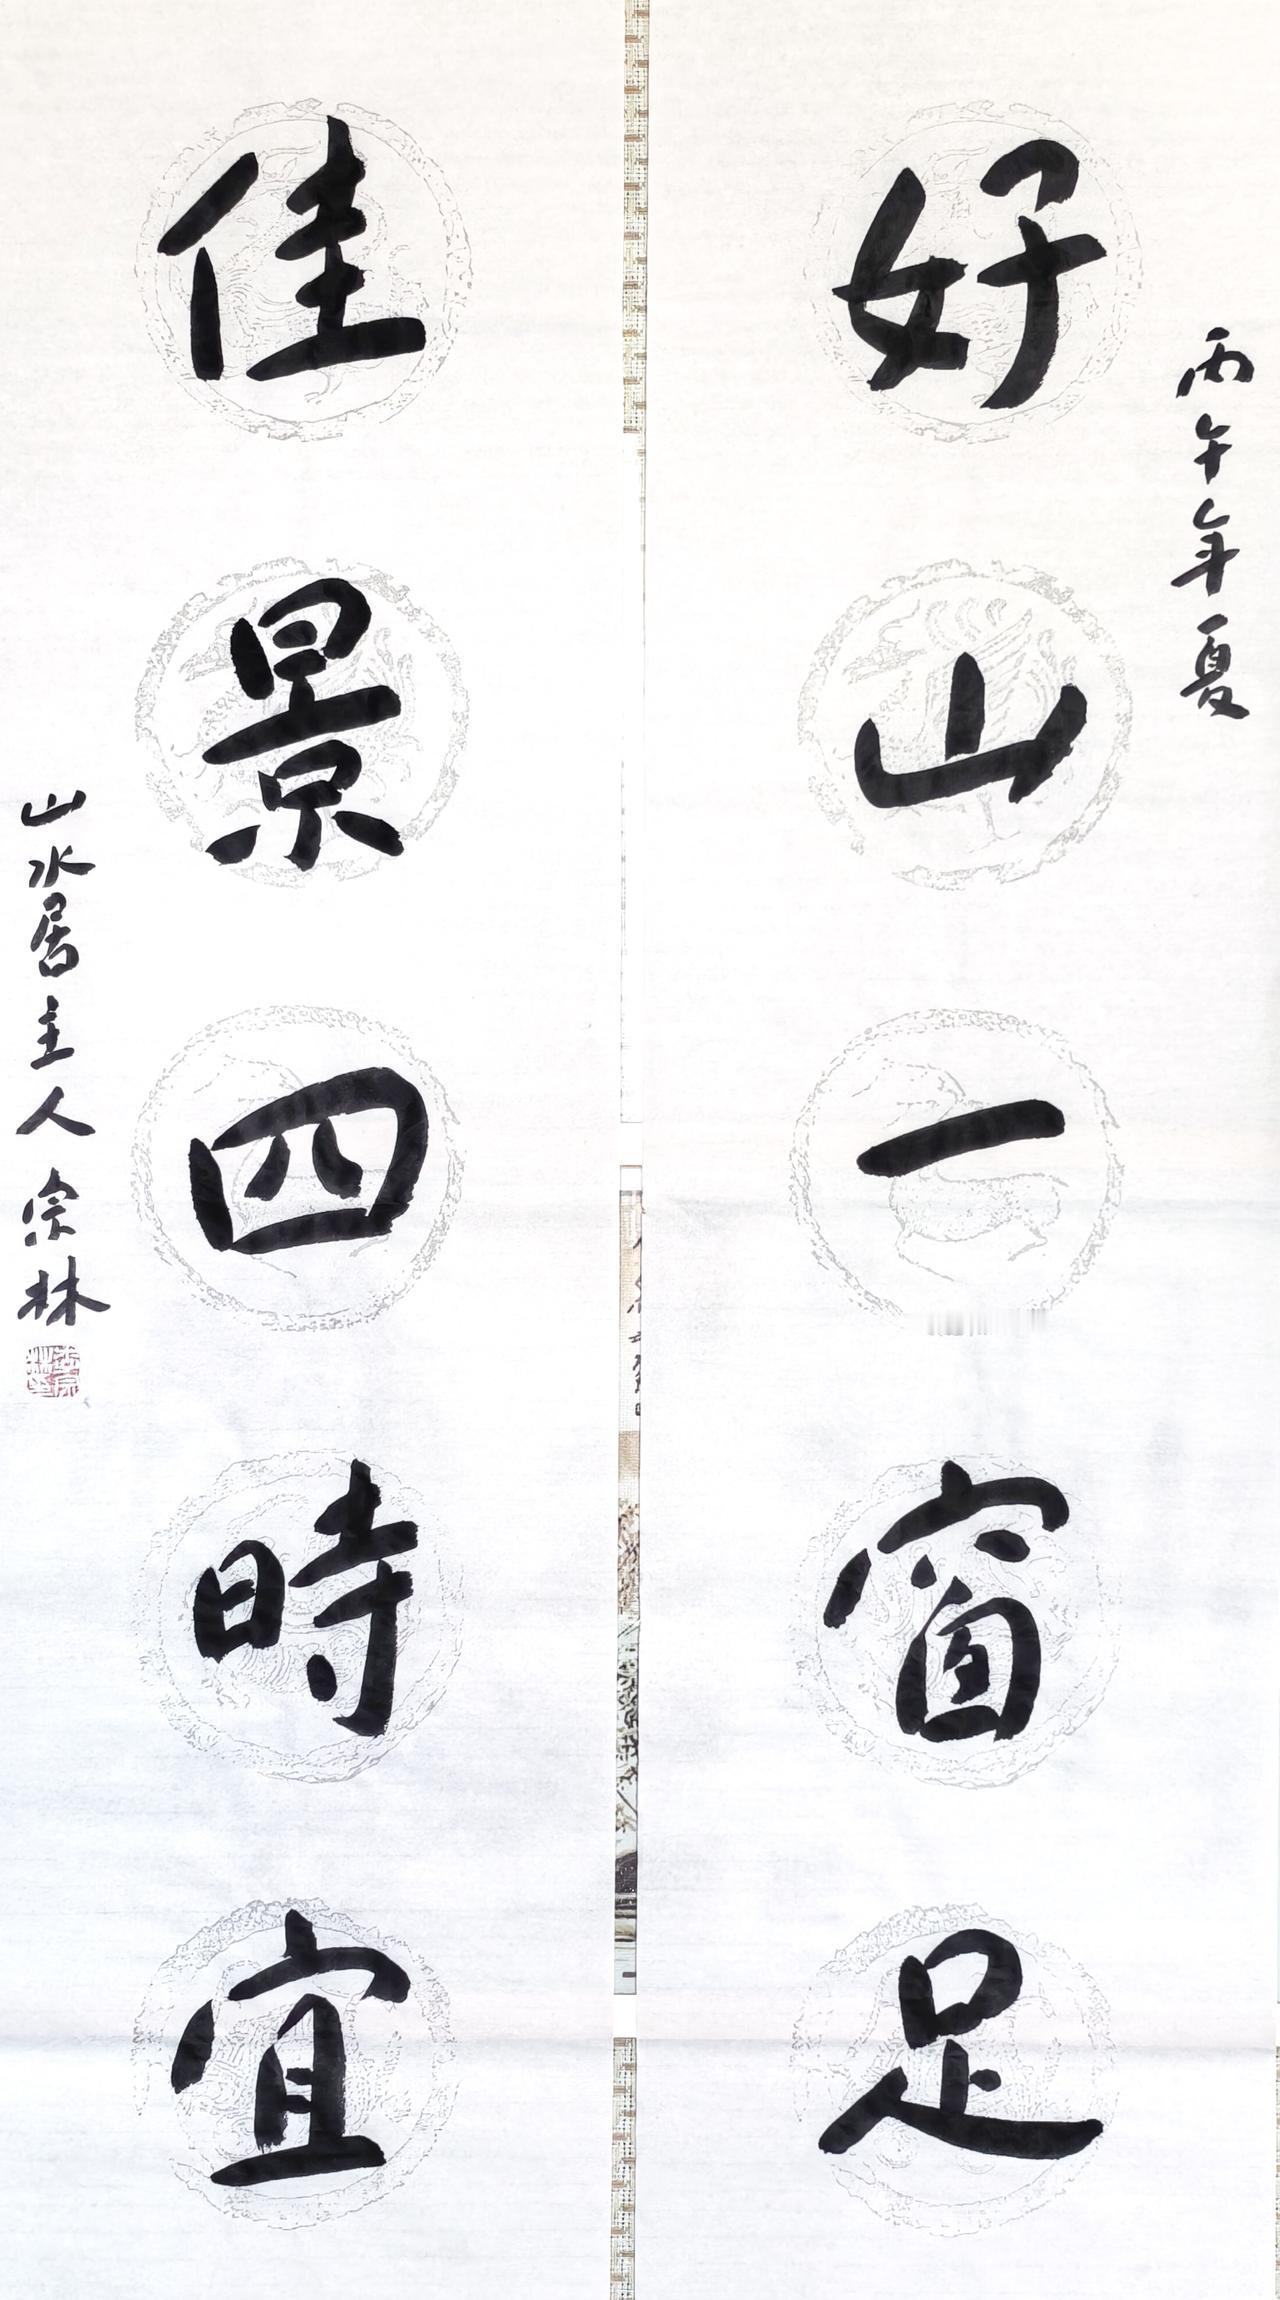 丙午年夏
好山一窗足
佳景四時宜
山水居主人宗林